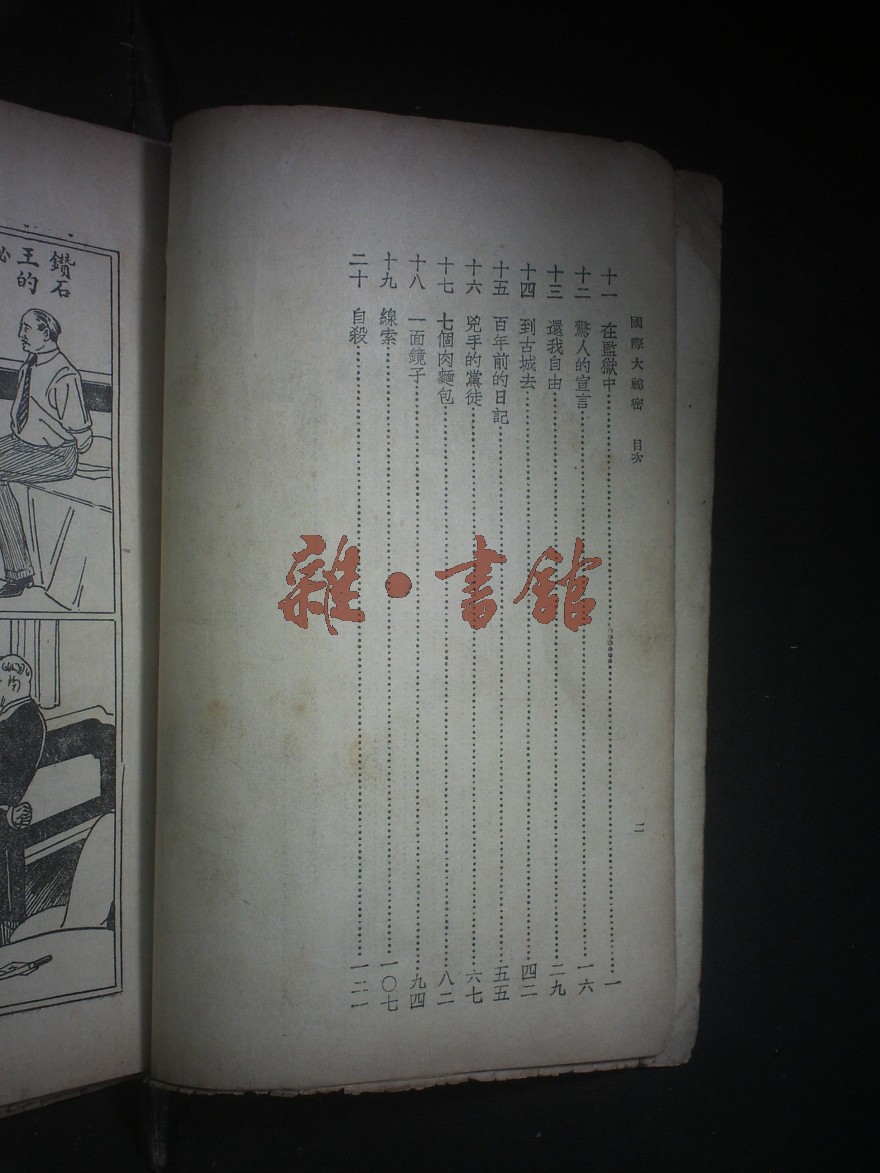 國際大祕密 目次 二
十一 在監獄中 一
十二 驚人的宣言 一六
十三 還我自由 二九
十四 到古城去 四二
十五 百年前的日記 五五
十六 兇手的黨徒 六七
十七 七個肉麵包 八二
十八 一面鏡子 九四
十九 線索 一〇七
二十 自殺 一二一
鑽石
王的
雜·書館